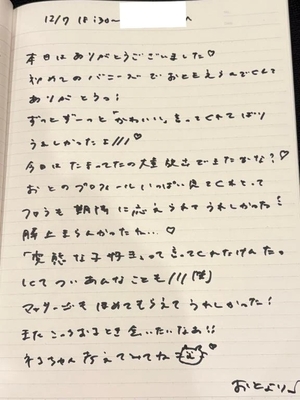 12/7 18:30〜
本日はありがとうございました♡
初めてのバニーズでおとをえらんでくれて
ありがとうっ!
ずっとずーっと「かわいい」言ってくれてばり
うれしかったよ///♡
今日はたまってたの大量放出できたかな?♡
おとのプロフィールいっぱい見てくれとって
フロうも期待に応えられてうれしかった!
勝止まらんかったね...♡
「変態な子将えって言ってくれたけんたっ
にてついあんなことも///(笑)
マッサージもほめてもらえてうれしかった!
またこっちおるとき会いたいなあ!!
ネるちゃん考えてみてね♡
おとより♪